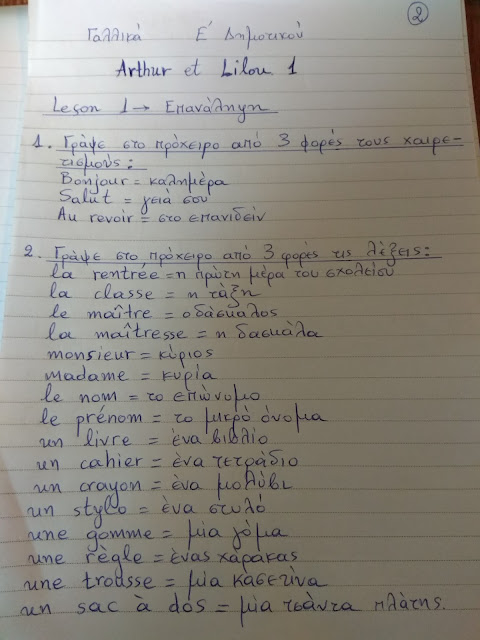 2
Γαλλικά Ε΄ Δημοτικού
Arthur et Lilou 1
Leçon 1 → Επανάληψη
1. Γράψε στο πρόχειρο από 3 φορές τους χαιρε-
τισμούς:
Bonjour = καλημέρα
Salut = γειά σου
Au revoir = στο επανιδείν
2. Γράψε στο πρόχειρο από 3 φορές τις λέξεις:
la rentrée = η πρώτη μέρα του σχολείου
la classe = η τάξη
le maître = ο δάσκαλος
la maîtresse = η δασκάλα
monsieur = κύριος
madame = κυρία
le nom = το επώνυμο
le prénom = το μικρό όνομα
un livre = ένα βιβλίο
un cahier = ένα τετράδιο
un crayon = ένα μολύβι
un stylo = ένα στυλό
une gomme = μία γόμα
une règle = ένας χάρακας
une trousse = μία κασετίνα
un sac à dos = μία τσάντα πλάτης.